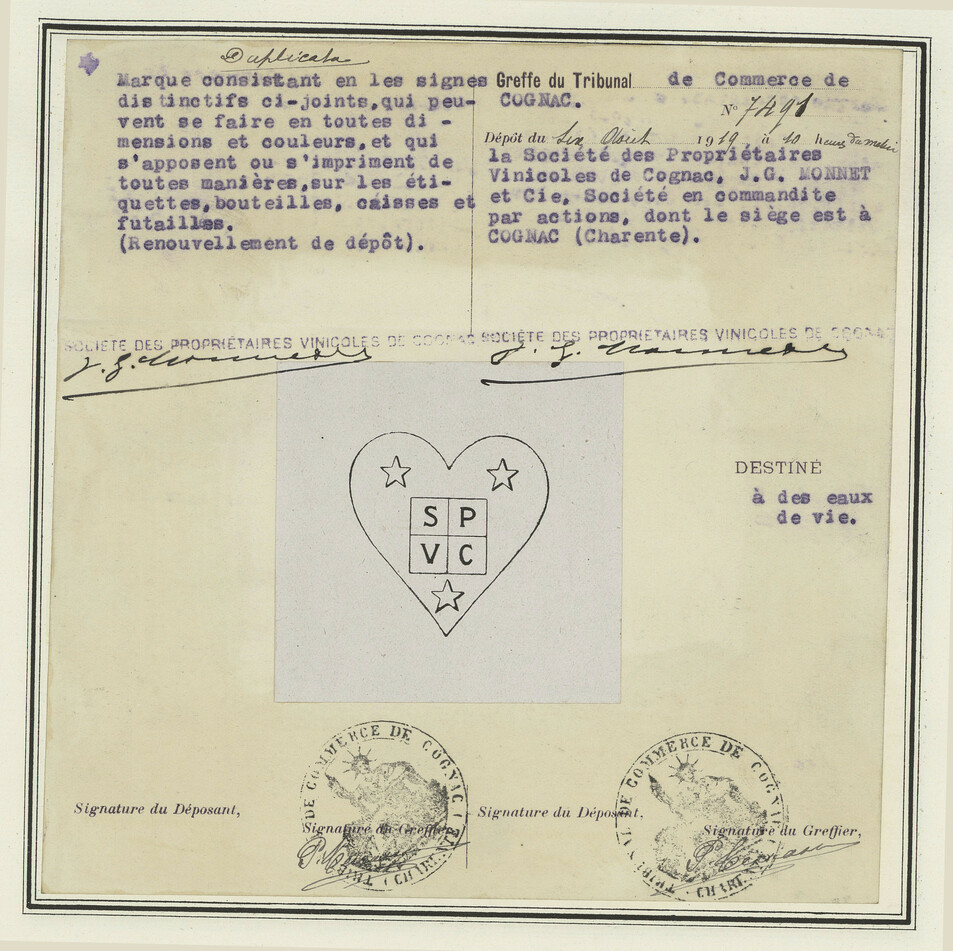 Duplicata
Marque consistant en les signes
distinctifs ci-joints,qui peu-
vent se faire en toutes di -
mensions et couleurs,et qui
s'apposent ou s'impriment de
toutes manières,sur les éti-
quettes,bouteilles, caisses et
futailles.
(Renouvellement de dépôt).
Greffe du Tribunal de Commerce de
COGNAC.
N° 7491
Dépôt du Six Août 1919, à 10 heures du matin
la Société des Propriétaires
Vinicoles de Cognac, J.G. MONNET
et Cie, Société en commandite
par actions, dont le siège est à
COGNAC (Charente).
SOCIÉTÉ DES PROPRIÉTAIRES VINICOLES DE COGNAC
J. G. Monnet
SOCIÉTÉ DES PROPRIÉTAIRES VINICOLES DE COGNAC
J. G. Monnet
S P
V C
DESTINÉ
à des eaux
de vie.
TRIBUNAL DE COMMERCE DE COGNAC
(CHARENTE)
Signature du Déposant,
Signature du Greffier,
TRIBUNAL DE COMMERCE DE COGNAC
CHARENTE
Signature du Déposant,
Signature du Greffier,